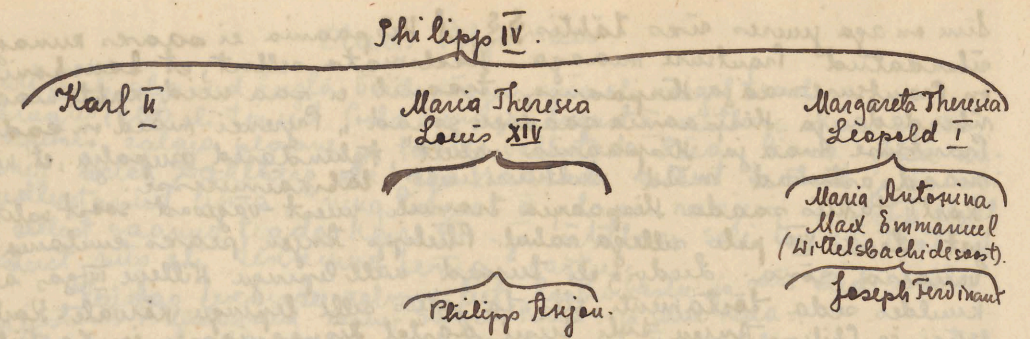 Philipp IV.
Karl II
Maria Theresia
Louis XIV
Margareta Theresia
Leopold I
Maria Antonina
Max Emmanuel
(Wittelsbachide soost).
Philipp Anjou.
Joseph Ferdinant